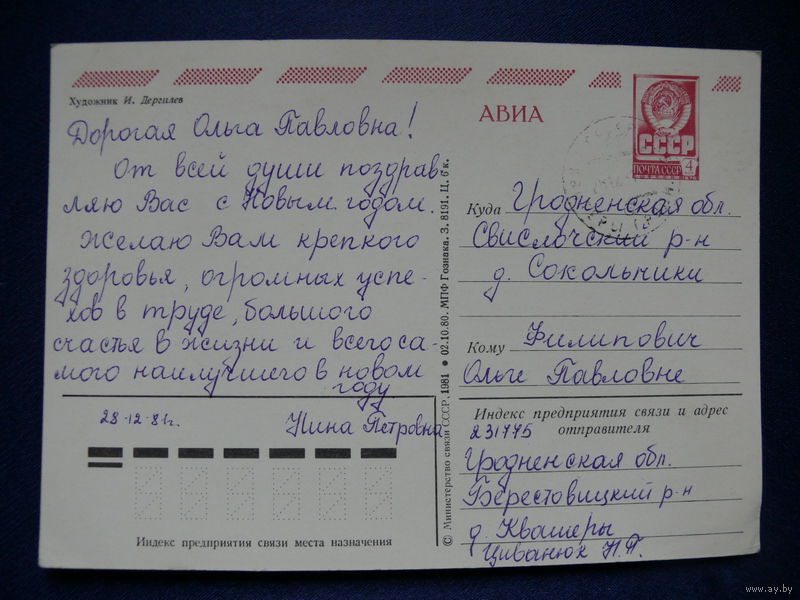 Художник И. Дергилев
Дорогая Ольга Павловна!
От всей души поздрав-
ляю Вас с Новым годом.
Желаю Вам крепкого
здоровья, огромных успе-
хов в труде, большого
счастья в жизни и всего са-
мого наилучшего в новом
году
28-12-81г.
Нина Петровна
Индекс предприятия связи места назначения
© Министерство связи СССР, 1981 • 02.10.80. МПФ Гознака. З. 8191. Ц. 6 к.
АВИА
СССР
ПОЧТА СССР 4
Куда Гродненская обл.
Свислочский р-н
д. Сокольники
Кому Филипович
Ольге Павловне
Индекс предприятия связи и адрес
отправителя
231775
Гродненская обл.
Берестовицкий р-н
д. Квашеры
Циванюк Н.П.
www.ay.by